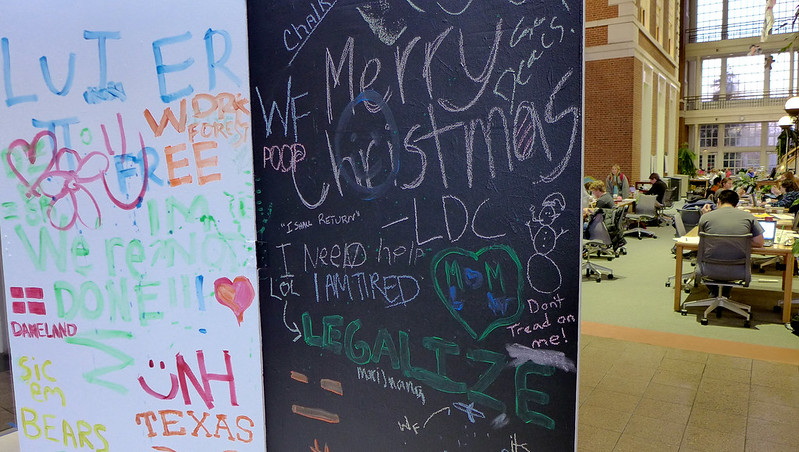 LUTHER
WORK
FOREST
FREE
FREE
IM
We're NOT
DONE!!!!
DAMELAND
SiC
em
BEARS
UNH
TEXAS
Chalk
Merry
Christmas
WF
POOP
–LDC
"I SHALL RETURN"
I NEED help
LOL
I AM TIRED
MOM
Don't
Tread on
me!
LEGALIZE
marijuana
WF